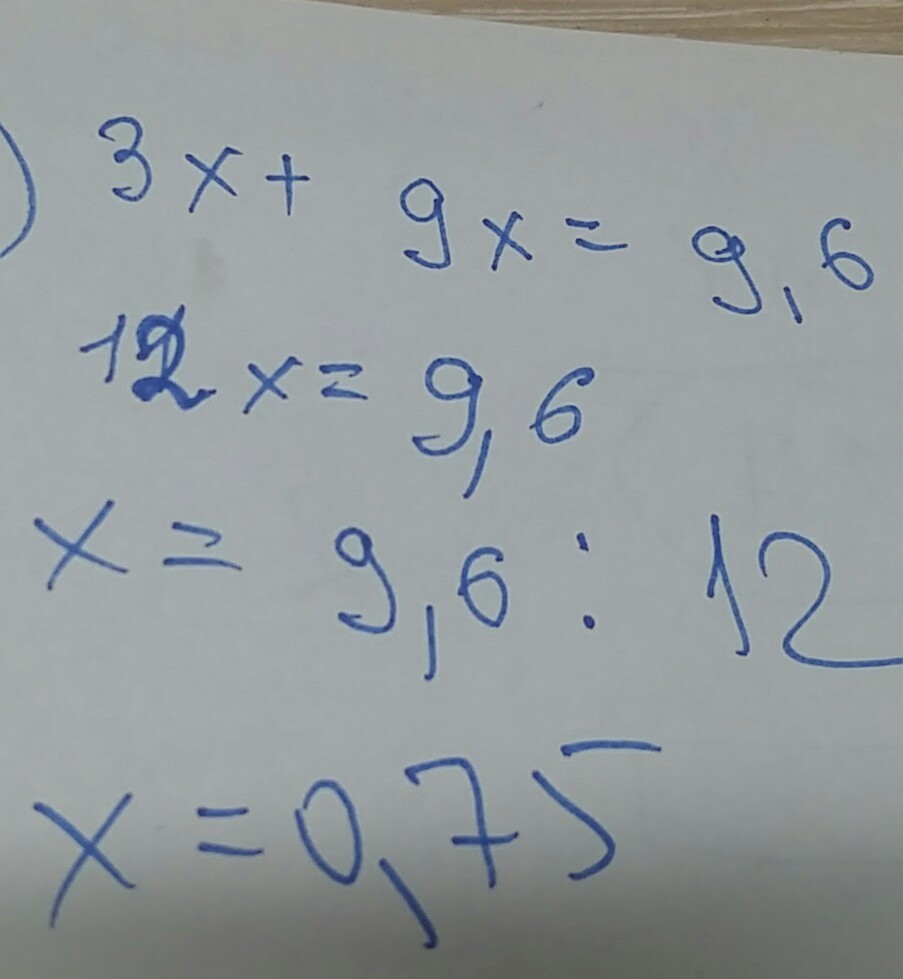 ) 3x + 9x = 9,6
12x = 9,6
x = 9,6 : 12
x = 0,75